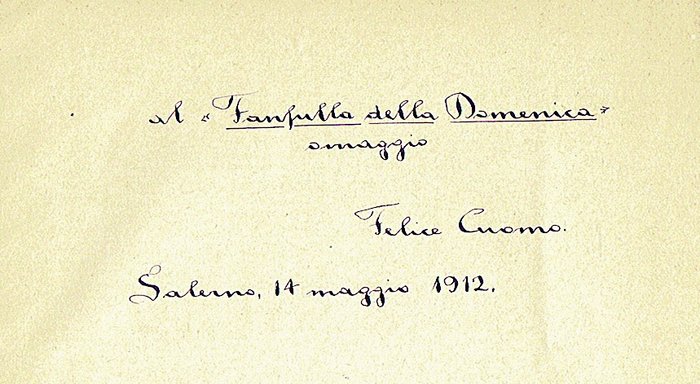 al « Fanfulla della Domenica »
omaggio
Felice Cuomo.
Salerno, 14 maggio 1912.